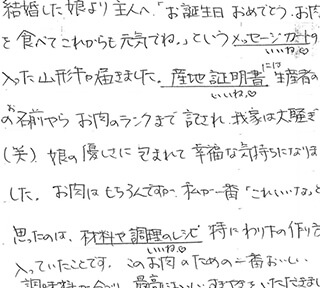 結婚した娘より主人へ「お誕生日おめでとう。お肉
を食べてこれからも元気でね。」というメッセージカードの
いいね♡
入った山形牛が届きました。産地証明書には生産者の
いいね♡
お名前やらお肉のランクまで記され我家は大騒ぎ
(笑)娘の優しさに包まれて幸福な気持ちになりま
した。お肉はもちろんですが、私が一番「これいいな」と
思ったのは、材料や調理のレシピ 特にわり下の作り方
いいね♡
入っていたことです。このお肉のための一番おいしい